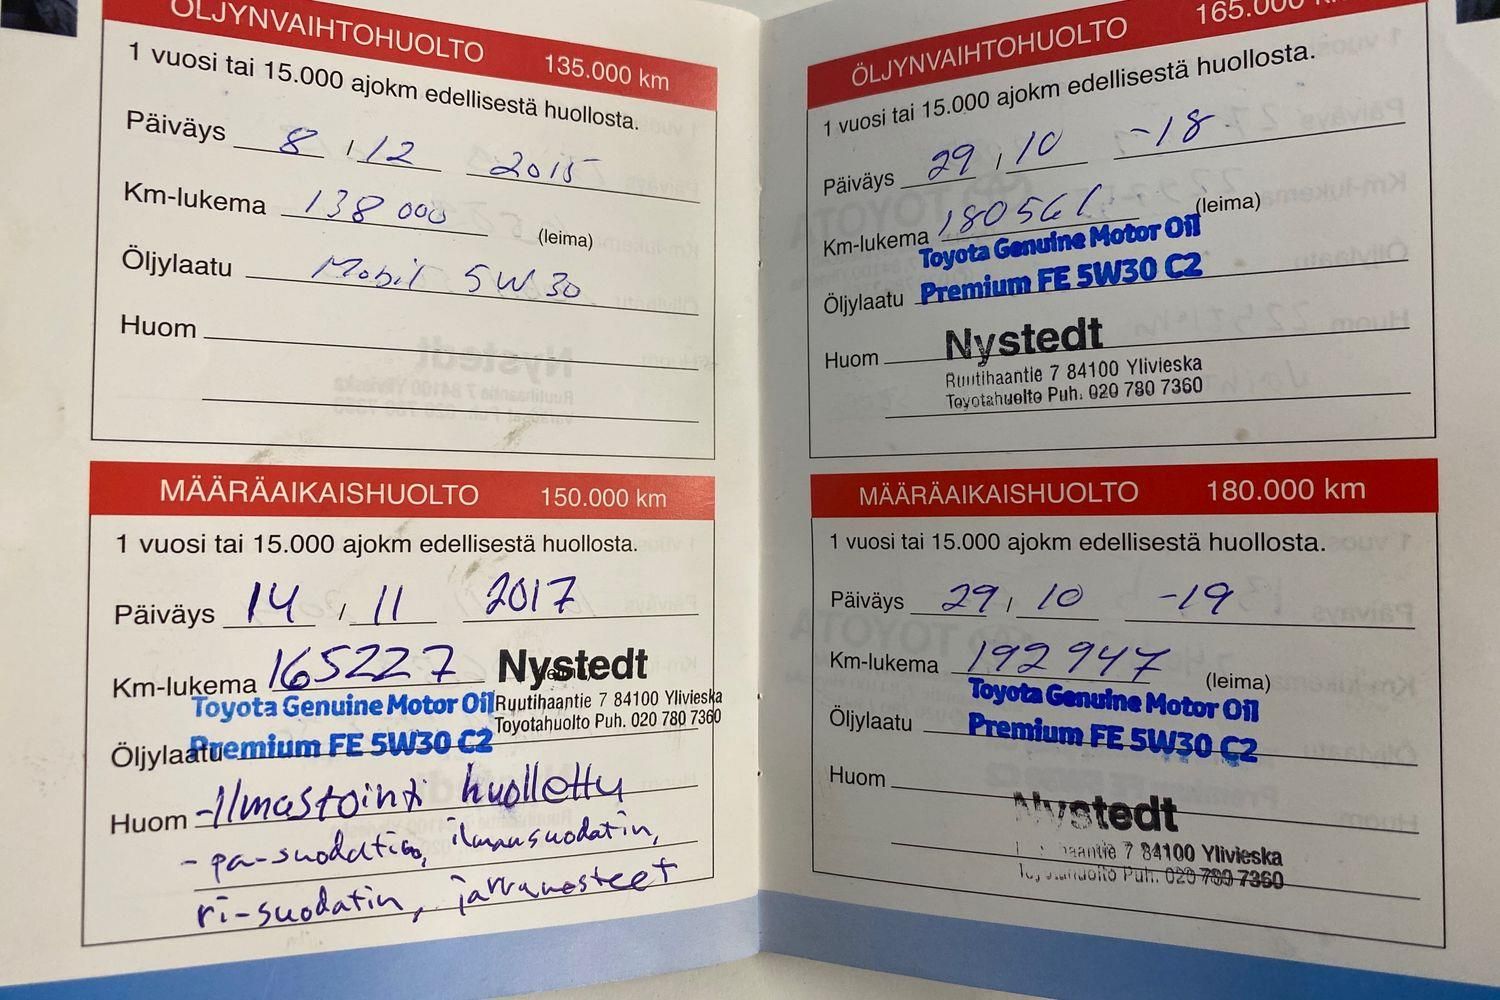 ÖLJYNVAIHTOHUOLTO 135.000 km
1 vuosi tai 15.000 ajokm edellisestä huollosta.
Päiväys 8 / 12 2015
Km-lukema 138 000
(leima)
Öljylaatu Mobil 5W30
Huom
MÄÄRÄAIKAISHUOLTO 150.000 km
1 vuosi tai 15.000 ajokm edellisestä huollosta.
Päiväys 14 / 11 2017
Km-lukema 165227 Nystedt
Toyota Genuine Motor Oil Ruutihaantie 7 84100 Ylivieska
Toyotahuolto Puh. 020 780 7360
Öljylaatu Premium FE 5W30 C2
Huom -Ilmastointi huollettu
- pa-suodatin, ilmansuodatin,
ri-suodatin, jarrunesteet
ÖLJYNVAIHTOHUOLTO 165.000 km
1 vuosi tai 15.000 ajokm edellisestä huollosta.
Päiväys 29 / 10 -18
Km-lukema 180561 (leima)
Toyota Genuine Motor Oil
Öljylaatu Premium FE 5W30 C2
Huom Nystedt
Ruutihaantie 7 84100 Ylivieska
Toyotahuolto Puh. 020 780 7360
MÄÄRÄAIKAISHUOLTO 180.000 km
1 vuosi tai 15.000 ajokm edellisestä huollosta.
Päiväys 29 / 10 -19
Km-lukema 192947 (leima)
Toyota Genuine Motor Oil
Öljylaatu Premium FE 5W30 C2
Huom
Nystedt
7 84100 Ylivieska
Puh. 020 780 7360